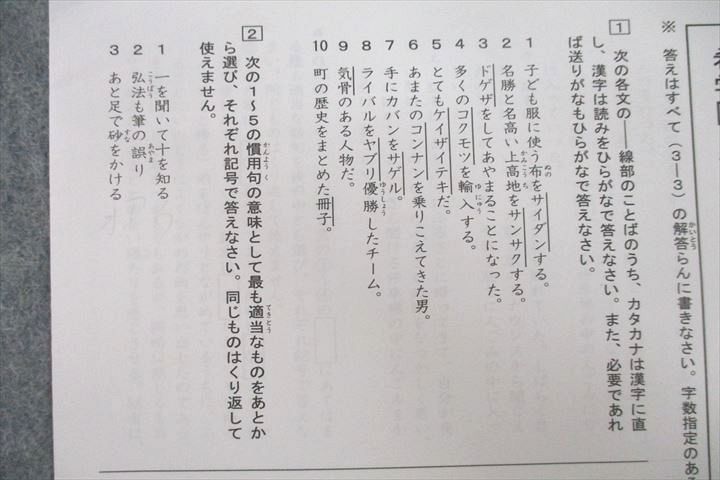 ※ 答えはすべて（3―3）の解答らんに書きなさい。字数指定のあ
1 次の各文の――線部のことばのうち、カタカナは漢字に直
し、漢字は読みをひらがなで答えなさい。また、必要であれ
ば送りがなもひらがなで答えなさい。
1 子ども服に使う布をサイダンする。
2 名勝と名高い上高地をサンサクする。
3 ドゲザをしてあやまることになった。
4 多くのコクモツを輸入する。
5 とてもケイザイテキだ。
6 あまたのコンナンを乗りこえてきた男。
7 手にカバンをサゲル。
8 ライバルをヤブリ優勝したチーム。
9 気骨のある人物だ。
10 町の歴史をまとめた冊子。
2 次の1～5の慣用句の意味として最も適当なものをあとか
ら選び、それぞれ記号で答えなさい。同じものはくり返して
使えません。
1 一を聞いて十を知る
2 弘法も筆の誤り
3 あと足で砂をかける